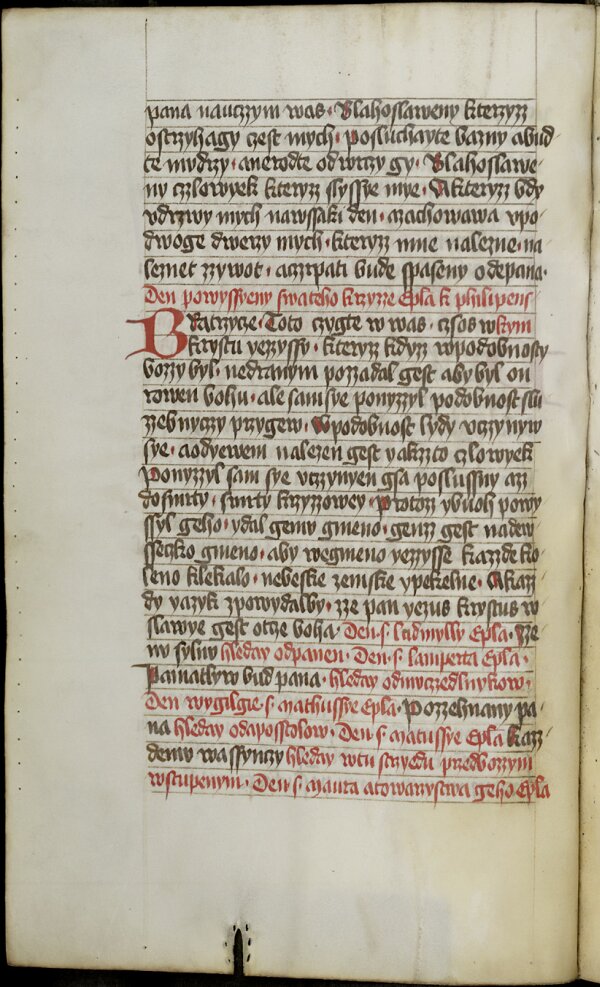 pana nauczym was · Blahoslaweny kterzyz
ostrzyhagy czest mych · posluchayte kazny abud
te mudrzy · anerodte odwrczy gy · Blahoslawe
ny czlowyek kteryz slyssye mye · Akteryz bdy
vdrzwy mych nawssaki den · azachowawa vpo
dwoge dwerzy mych · kteryz mne nalezne · na
leznet zywot · aczrpati bude spaseny odepana ·
Den powyssyeny swateho krzyzze Epla k philipens
Bratrzycze · Toto czygte w was · czsos wkrym
krystu yezyssy · kteryz kdyz wpodobnosty
bozzy byl · nedranym pozzadal gest aby byl on
rowen bohu · ale sam sye ponyzyl podobnost slu
zzebnyczy przygew · Wpodobnost lydy vczynyw
sye · aodyewem nalezen gest yakzto czlowyek
Ponyzyl sam sye vczynyen gsa poslussny az
dosmrty · smrty krzyzowey · Protoz ybuoh powy
ssyl geho · ydal gemu gmeno · genz gest nadew
sseczko gmeno · aby wegmeno yezysse kazde ko
leno klekalo · nebeske zemske ypekelne · Akaz
dy yazyk zpowydalby · zze pan yezus krystus w
slawye gest otcze boha · Den · s · ludmylly Epla · Ze
nu sylnu hleday odpanen · Den · s · lamperta Epla ·
Pamatlyw bud pana · hleday odmuczedlnykow ·
Den wygilgie · s · mathussye Epla · Pozzehnany pa
na hleday odapostolow · Den · s · matussye Epla kaz
demu wassynczy hleday wtu strzyedu przedbozzym
wstupenym · Den · s · maura atowarzystwa geho Epla